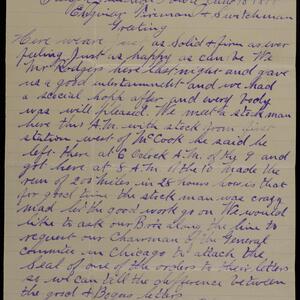 Engineer Fireman & Switchman
Greeting
Here we are as Solid & firm as ever
feeling Just as happy as can be The
Mr Rodgers here last night and gave
us a good entertainment and we had
a social hop after and every body
was will pleased. We met a stock man
here this A.M. with stock from first
station west of McCook he said he
left there at 6 O'clock A.M. of the 9 and
got here at 8 A.M. of the 10 made the
run of miles in 26 hours how is that
for good time the stock man was crazy
mad let the good work go on We would
like to ask our Bros along the line to
request our Chairman of the General
committe in Chicago to attach the
Seal of one of the orders to their letters
so we can till the difference between
the good & Bogus letters